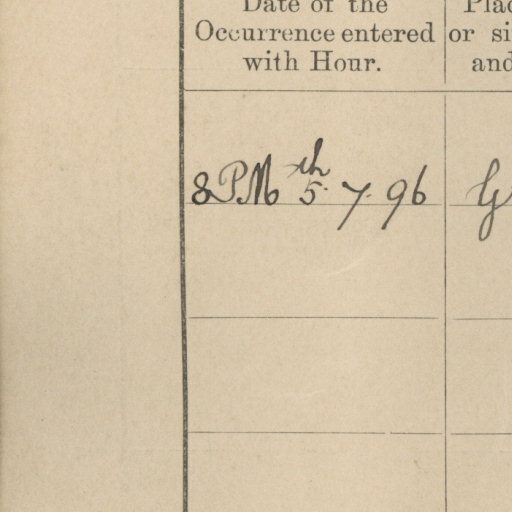 Date of the
Occurrence entered
with Hour.
or
and
8 PM 5th. 7. 96